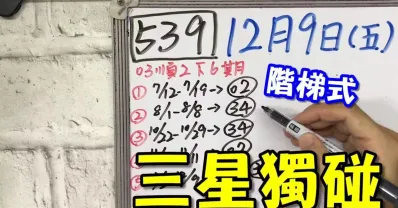 539 12月9日(五)
03順2下6英月
階梯式
① 7/12-7/19→02
② 8/1-8/8→34
③ 10/22-10/29→34
三星獨碰